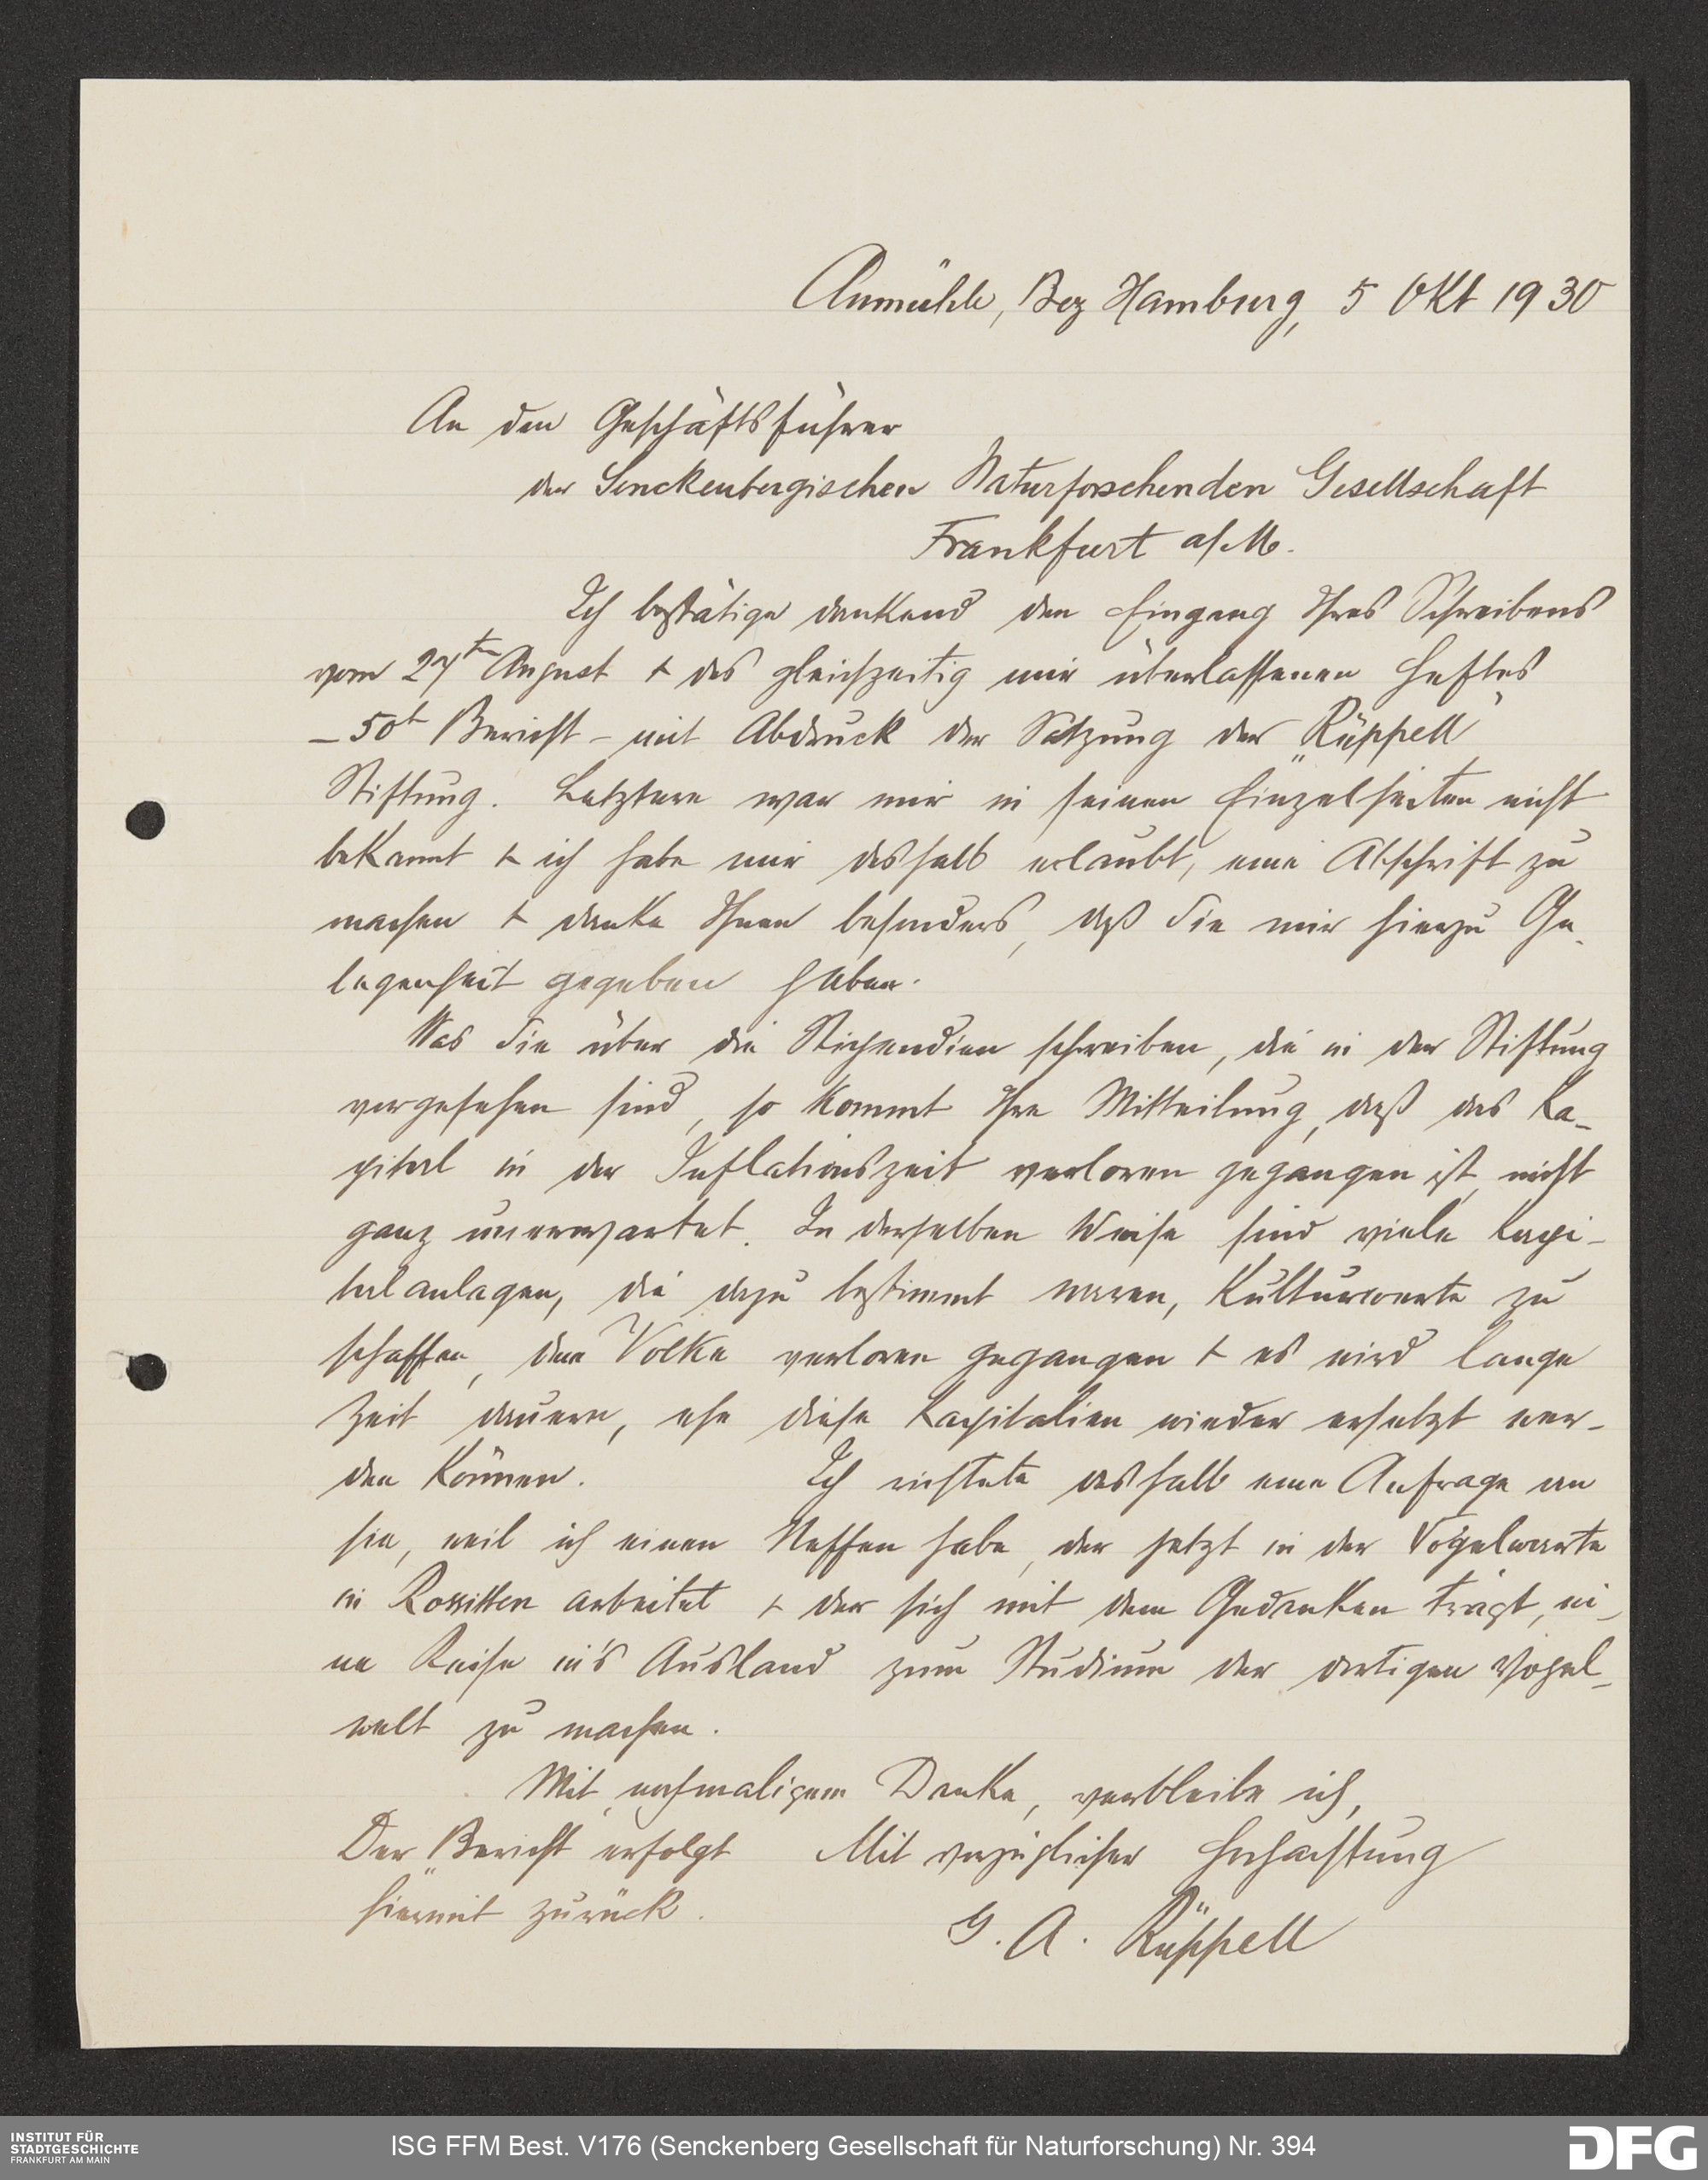 Aumühle, Bez Hamburg, 5 Okt 1930
An den Geschäftsführer
der Senckenbergischen Naturforschenden Gesellschaft
Frankfurt a/M.
Ich bestätige dankend den Eingang Ihres Schreibens
vom 27ten August & des gleichzeitig mir überlassenen Heftes
- 50t Bericht - mit Abdruck der Satzung der „Rüppell"
Stiftung. Letztere war mir in seinen Einzelheiten nicht
bekannt & ich habe mir deshalb erlaubt, eine Abschrift zu
machen & danke Ihnen besonders, daß Sie mir hierzu Ge-
legenheit gegeben haben.
Was Sie über die Stipendien schreiben, die in der Stiftung
vorgesehen sind, so kommt Ihre Mitteilung, daß das Ka-
pital in der Inflationszeit verloren gegangen ist, nicht
ganz unerwartet. In derselben Weise sind viele Kapi-
talanlagen, die dazu bestimmt waren, Kulturwerte zu
schaffen, dem Volke verloren gegangen & es wird lange
Zeit dauern, ehe diese Kapitalien wieder ersetzt wer-
den können. Ich richtete deshalb eine Anfrage an
sie, weil ich einen Neffen habe, der jetzt in der Vogelwarte
in Rossitten arbeitet & der sich mit dem Gedanken trägt, ei-
ne Reise in's Ausland zum Studium der dortigen Vogel-
welt zu machen.
Mit nochmaligem Danke, verbleibe ich,
Der „Bericht" erfolgt Mit vorzüglicher Hochachtung
hiermit zurück.
G. A. Rüppell
INSTITUT FÜR
STADTGESCHICHTE
FRANKFURT AM MAIN
ISG FFM Best. V176 (Senckenberg Gesellschaft für Naturforschung) Nr. 394
DFG